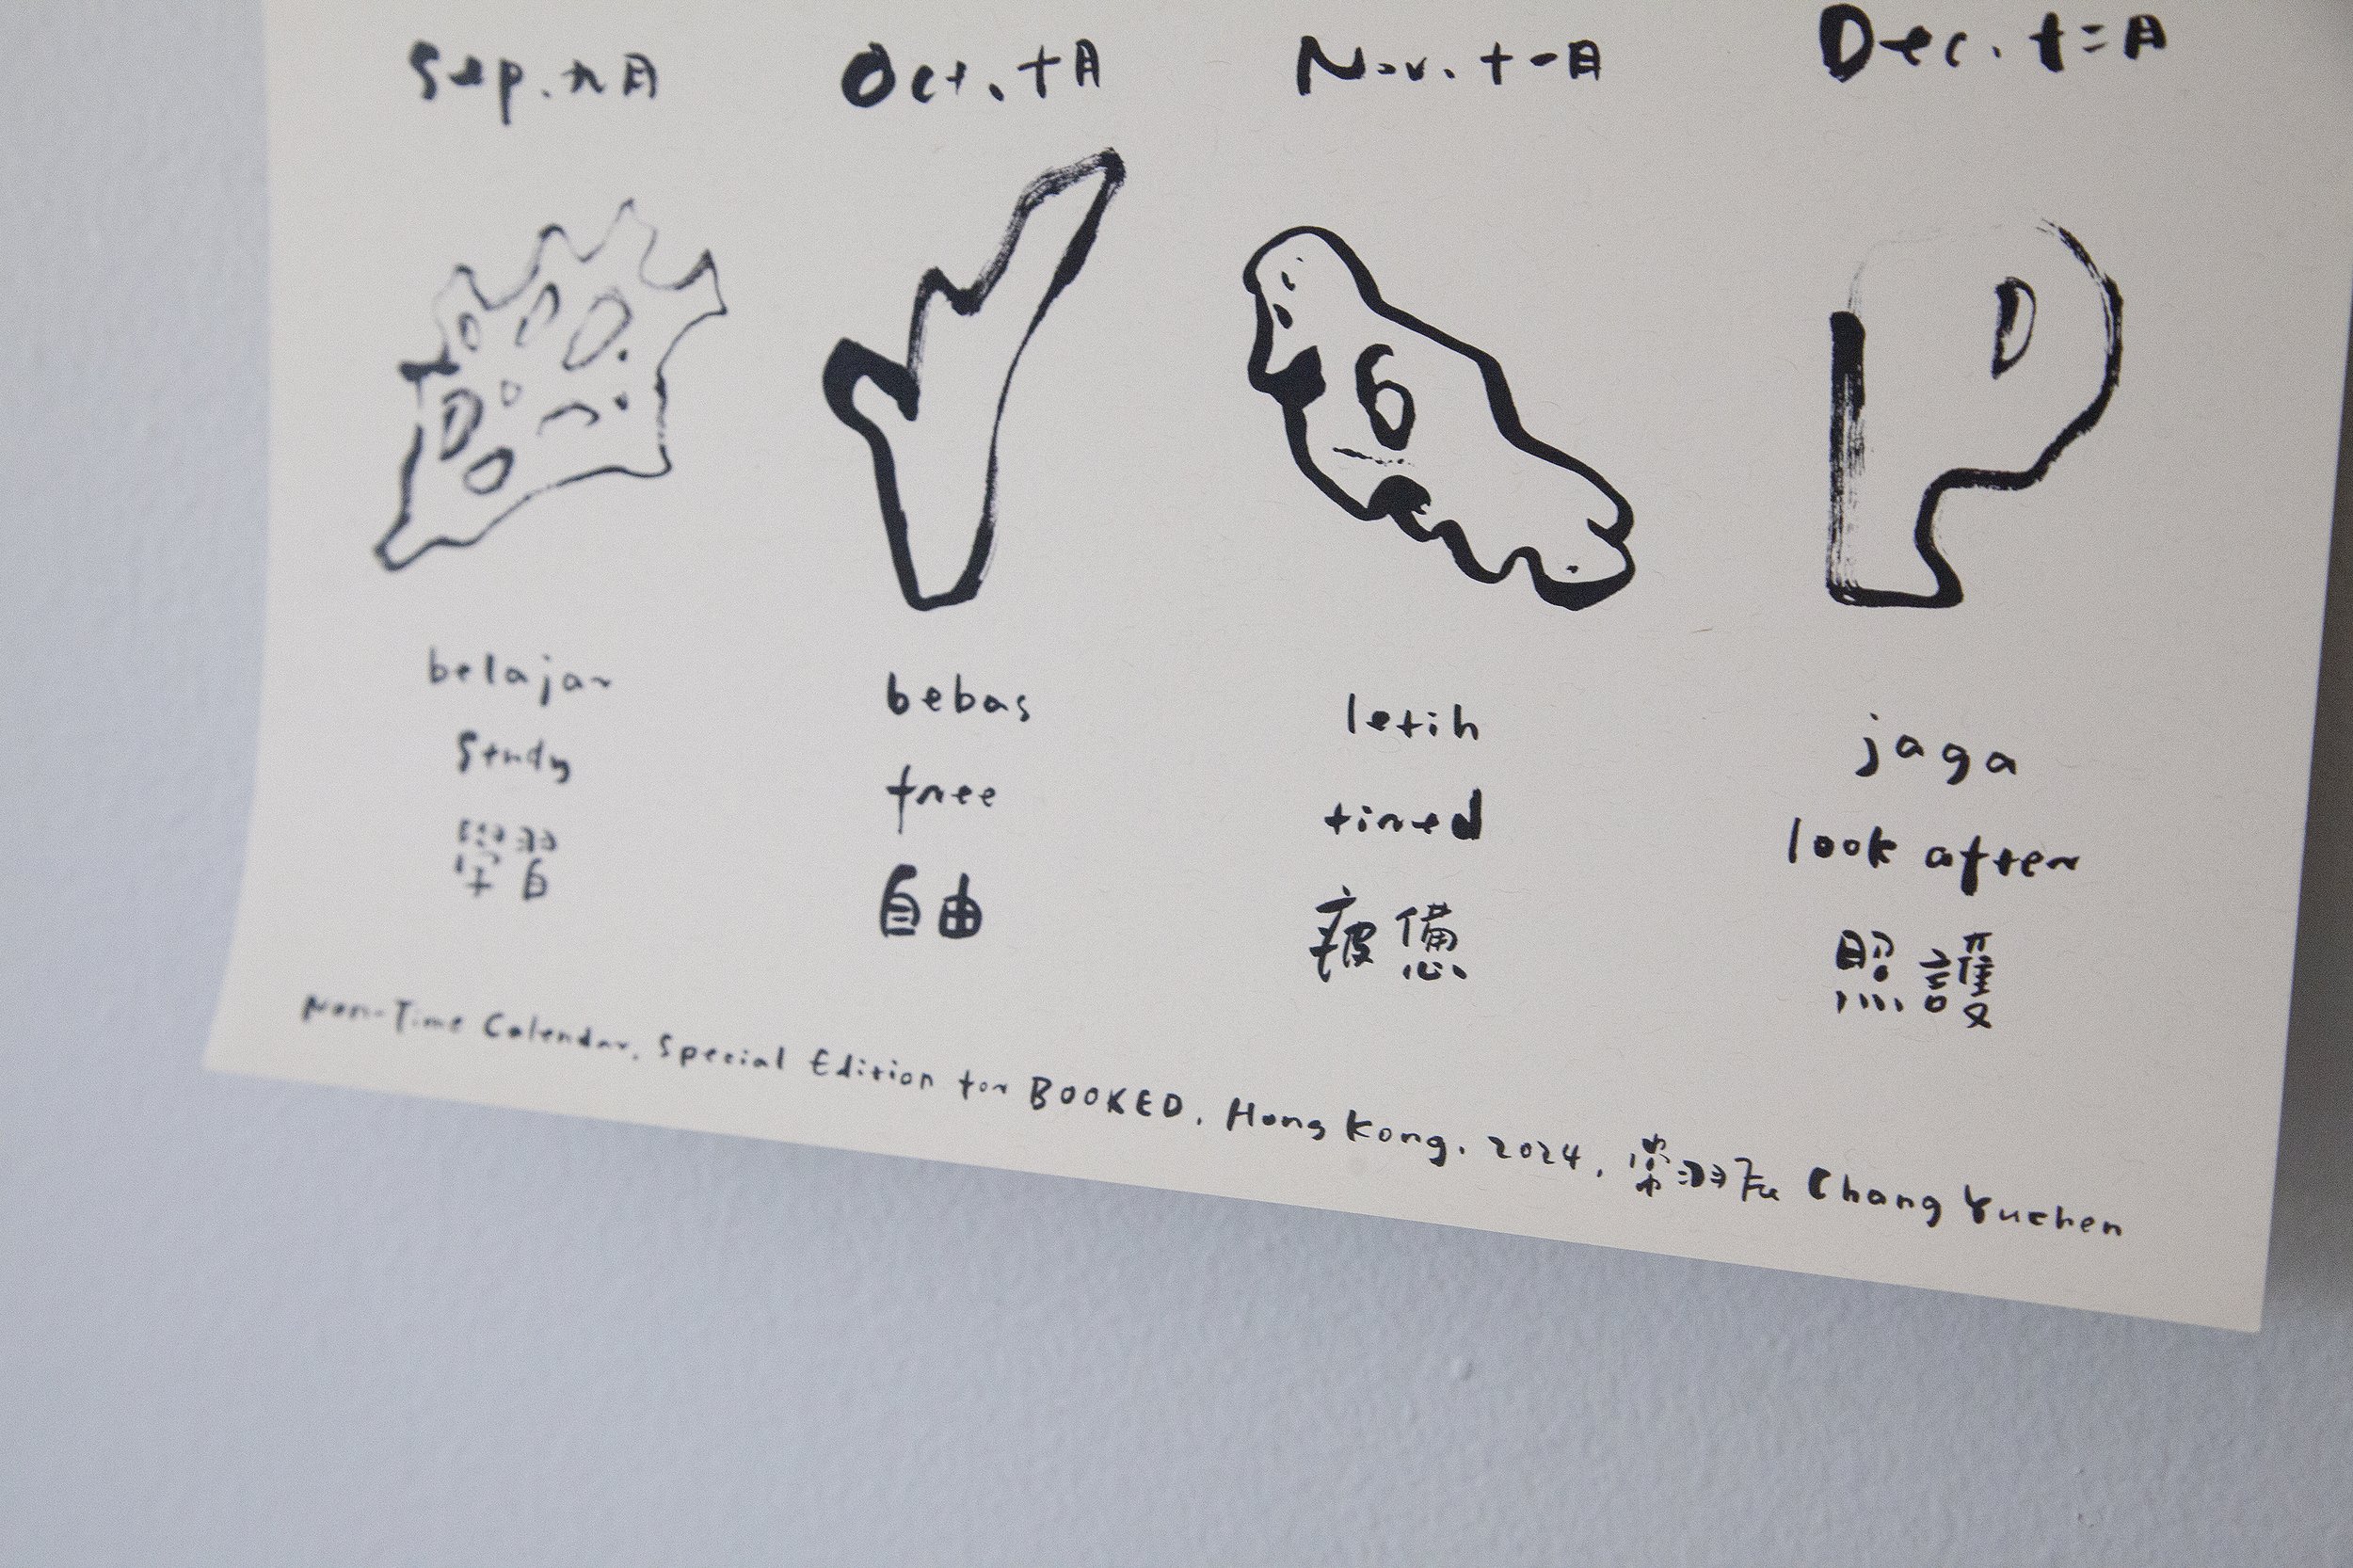 Sep. 九月
Oct. 十月
Nov. 十一月
Dec. 十二月
belajar
study
學習
bebas
free
自由
letih
tired
疲憊
jaga
look after
照護
Non-Time Calendar, Special Edition for BOOKED, Hong Kong, 2024, 常羽辰 Chang Yuchen